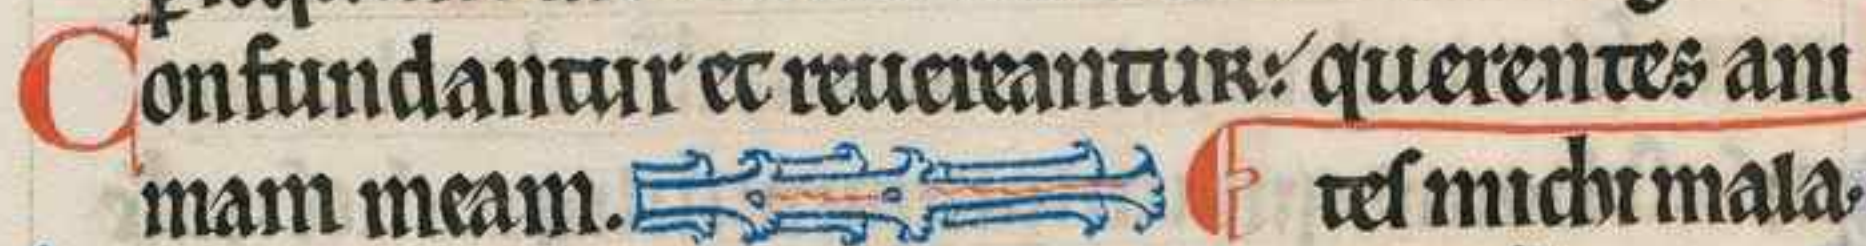 Confundantur et reuereantur: querentes ani
mam meam. tes michi mala.